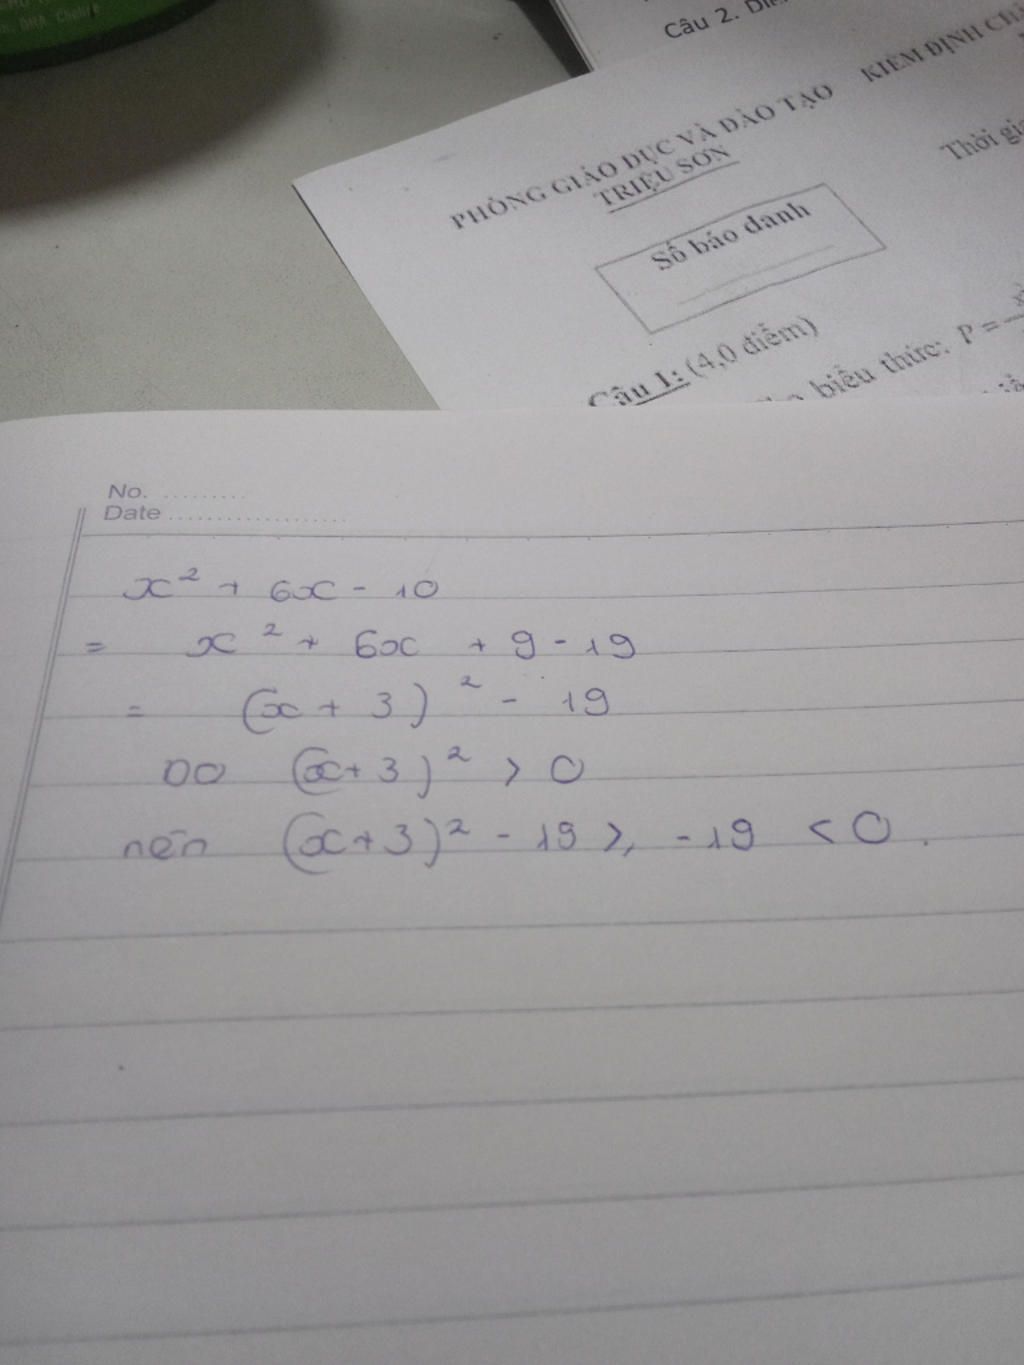 Câu 2.
PHÒNG GIÁO DỤC VÀ ĐÀO TẠO
TRIỆU SƠN
KIỂM ĐỊNH
Thời
Số báo danh
Câu 1: (4,0 điểm)
biểu thức: P =
No. .........
Date ...................
x² + 6x - 10
= x² + 6x + 9 - 19
= (x + 3)² - 19
DO (x + 3)² > 0
nên (x + 3)² - 19 ⩾ -19 < 0.